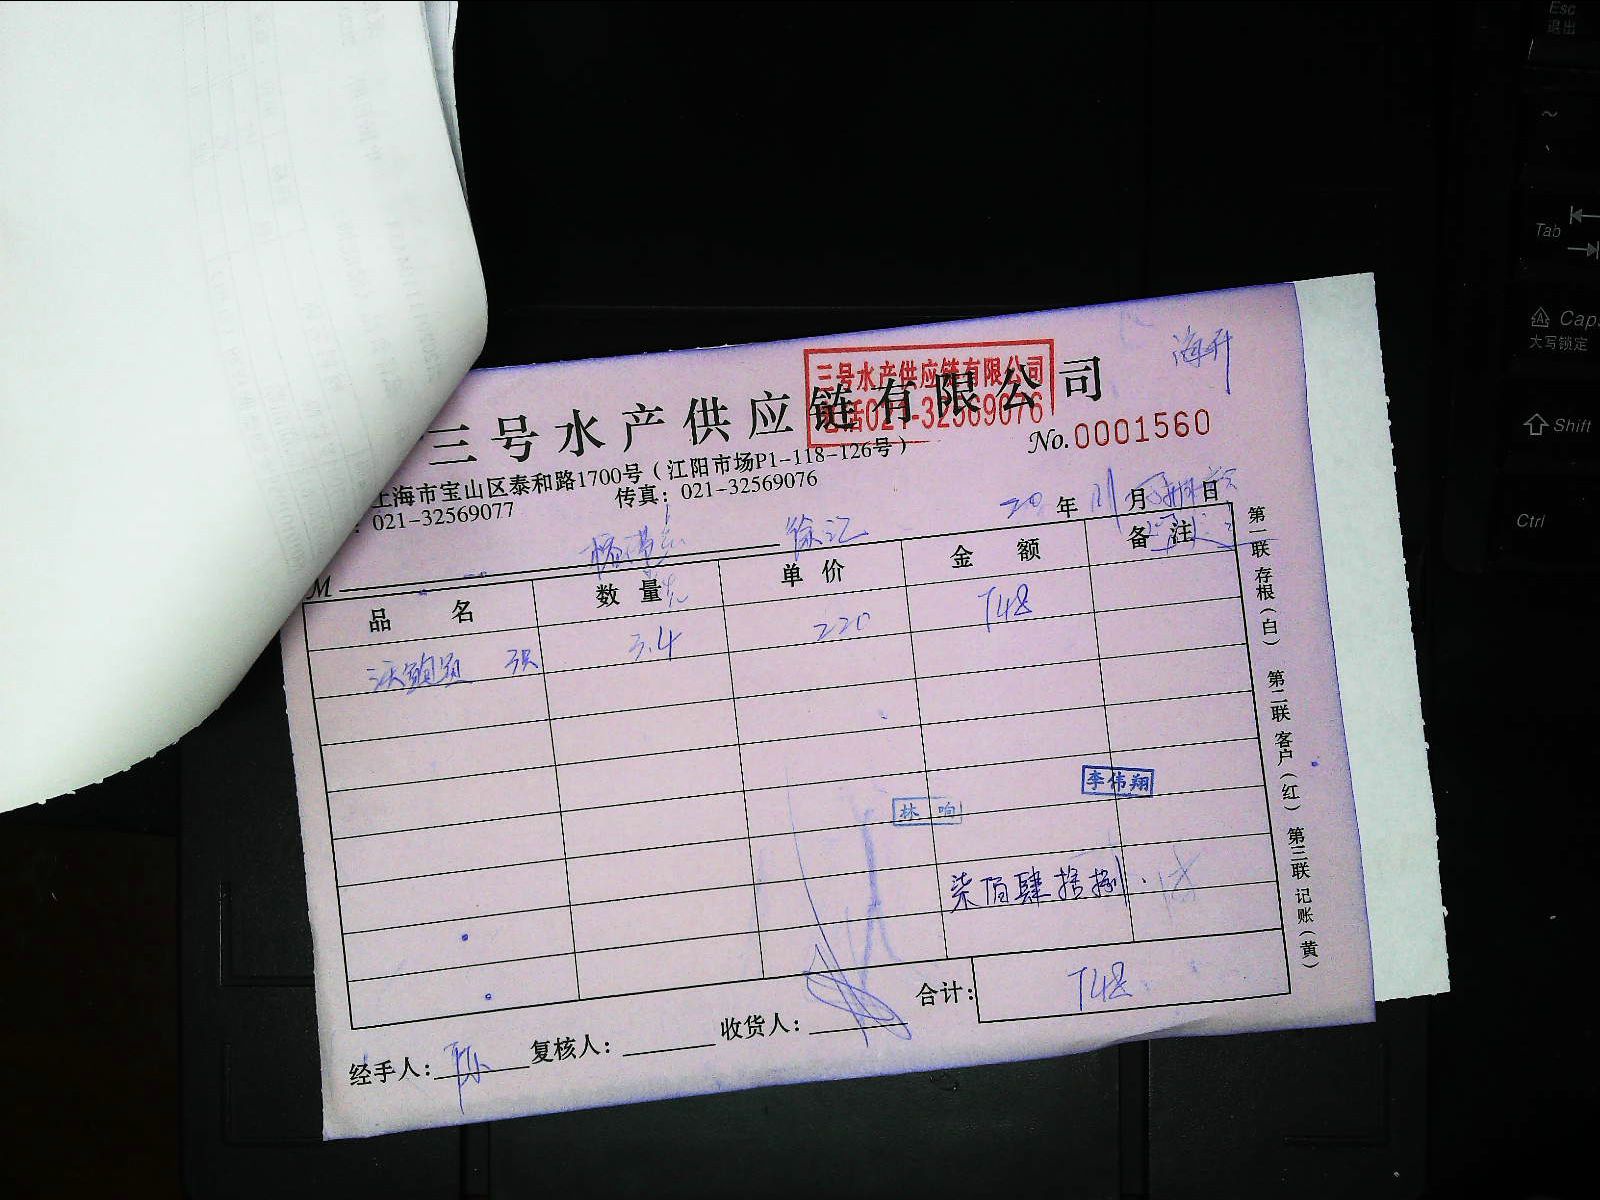 海升
三号水产供应链有限公司
三号水产供应链有限公司
电话021-32569076
No.0001560
上海市宝山区泰和路1700号(江阳市场P1-118-126号)
021-32569077 传真:021-32569076
20 年 月 日
M 徐汇
品名 数量 单价 金额 备注
3.4 220 748
李伟翔
林响
柒佰肆拾捌
合计: 748
经手人: 陈 复核人: 收货人:
第一联 存根(白) 第二联 客户(红) 第三联 记账(黄)
Esc
退出
~
Tab
Caps
大写锁定
Shift
Ctrl